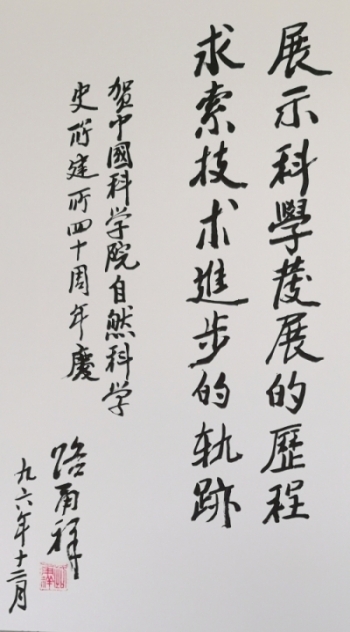 展示科學發展的歷程
求索技术進步的軌跡
贺中國科学院自然科学
史所建所四十周年慶
路甬祥
九六年十二月